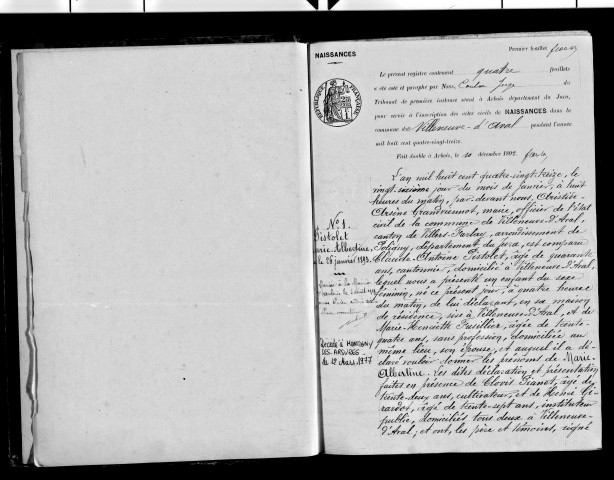 NAISSANCES
Premier feuillet
Le présent registre contenant quatre feuillets
a été coté et paraphé par Nous, Juge du
Tribunal de première instance séant à Arbois département du Jura,
pour servir à l'inscription des actes civils de NAISSANCES dans la
commune de Villeneuve-d'Aval pendant l'année
mil huit cent quatre-vingt-treize.
Fait double à Arbois, le 10 décembre 1892.
RÉPUBLIQUE FRANÇAISE
L'an mil huit cent quatre-vingt-treize, le
vingt-sixième jour du mois de janvier, à huit
heures du matin, par-devant nous, Aristide-
Arsène Grandvuennot, maire, officier de l'état
civil de la commune de Villeneuve-d'Aval,
canton de Villers-Farlay, arrondissement de
Poligny, département du Jura, est comparu
Claude-Antoine Pistolet, âgé de quarante
ans, cantonnier, domicilié à Villeneuve-d'Aval,
lequel nous a présenté un enfant du sexe
féminin, né ce présent jour, à quatre heures
du matin, de lui déclarant, en sa maison
de résidence, sise à Villeneuve-d'Aval, et de
Marie-Henriette Fusillier, âgée de trente-
quatre ans, sans profession, domiciliée au
même lieu, son épouse, et auquel il a dé-
claré vouloir donner les prénoms de Marie-
Albertine. Les dites déclaration et présentation
faites en présence de Clovis Pianet, âgé de
trente-deux ans, cultivateur, et de Gi-
rardot, âgé de trente-sept ans, instituteur
public, domiciliés tous deux à Villeneuve-
d'Aval; et ont, les père et témoins, signé
N° 1.
Pistolet
Marie-Albertine,
le 26 janvier 1893.
Décédée à MONTIGNY
LES-ARSURES
le 12 Mars 1977